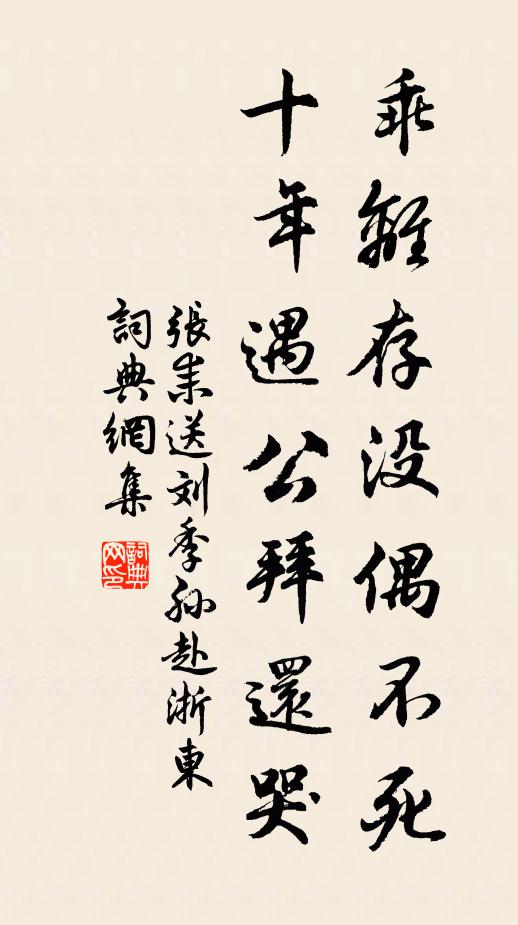 乖離存没偶不死
十年遇公拜還哭
張耒送刘季孫赴浙東
詞典網集
詞典网印